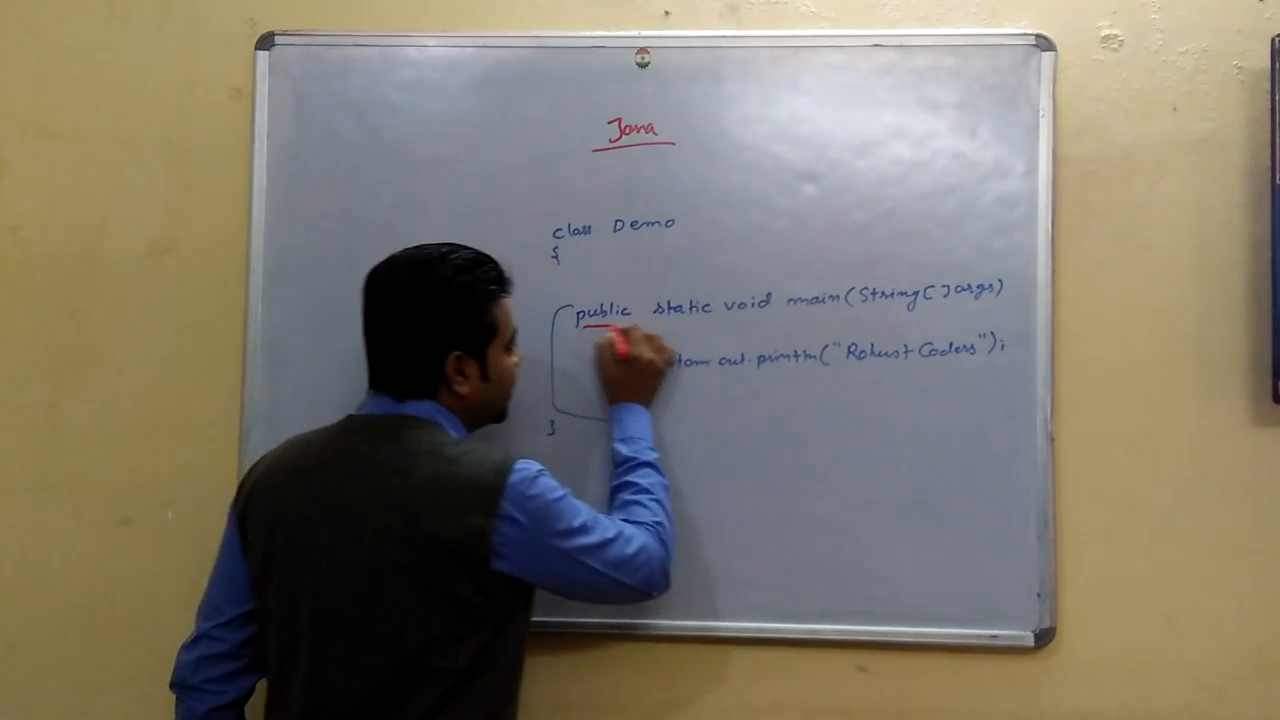 Java
class Demo
{
public static void main(String[] args)
tem.out.println("Robust Coders");
}